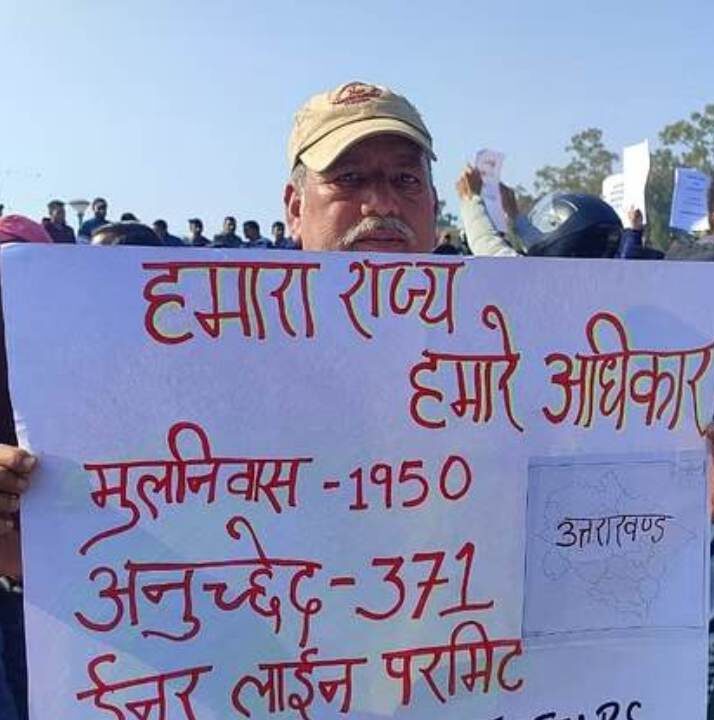 हमारा राज्य
हमारे अधिकार
मुलनिवास -1950
उत्तराखण्ड
अनुच्छेद-371
ईनर लाईन परमिट